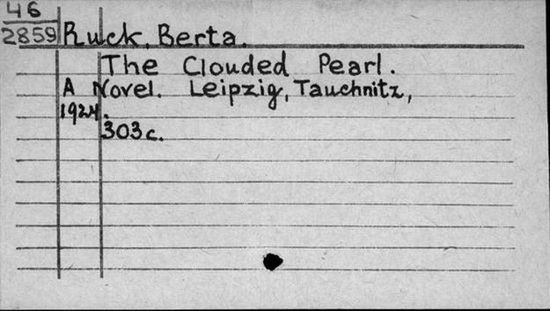 46
2859 Ruck, Berta.
The Clouded Pearl.
A Novel. Leipzig, Tauchnitz,
1924.
303c.